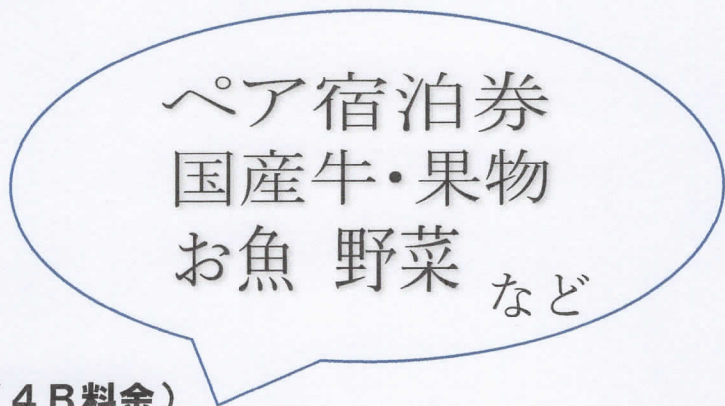 ペア宿泊券
国産牛・果物
お魚 野菜 など
4B料金)